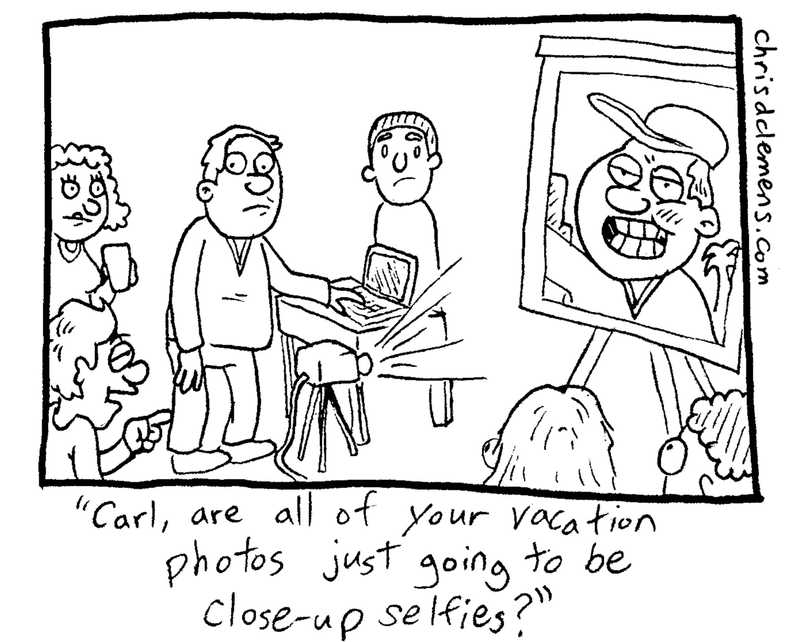 chrisdclemens.com
"Carl, are all of your vacation
photos just going to be
close-up selfies?"